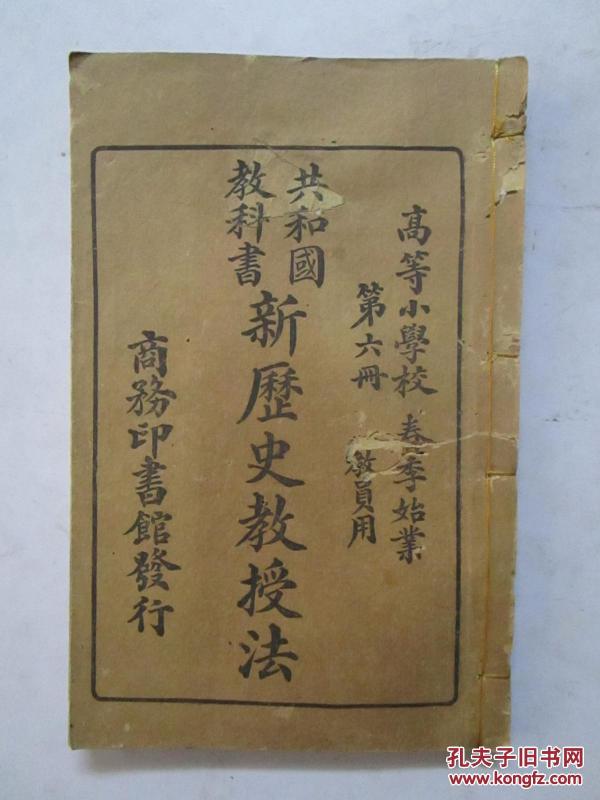 高等小學校 春季始業
第六冊 教員用
共和國
教科書
新歷史教授法
商務印書館發行
孔夫子旧书网
www.kongfz.com